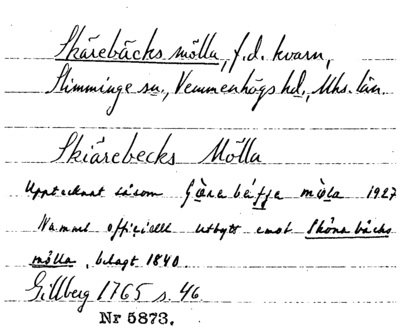 Skärebäcks mölla, f.d. kvarn,
Slimminge sn., Vemmenhögs hd., Mhs. län.
Skiärebecks Mölla
Upptecknat såsom möla 1927
Namnet officiellt utbytt emot Sköna bäcks
mölla, belagt 1840.
Gillberg 1765 s. 46
Nr 5873.